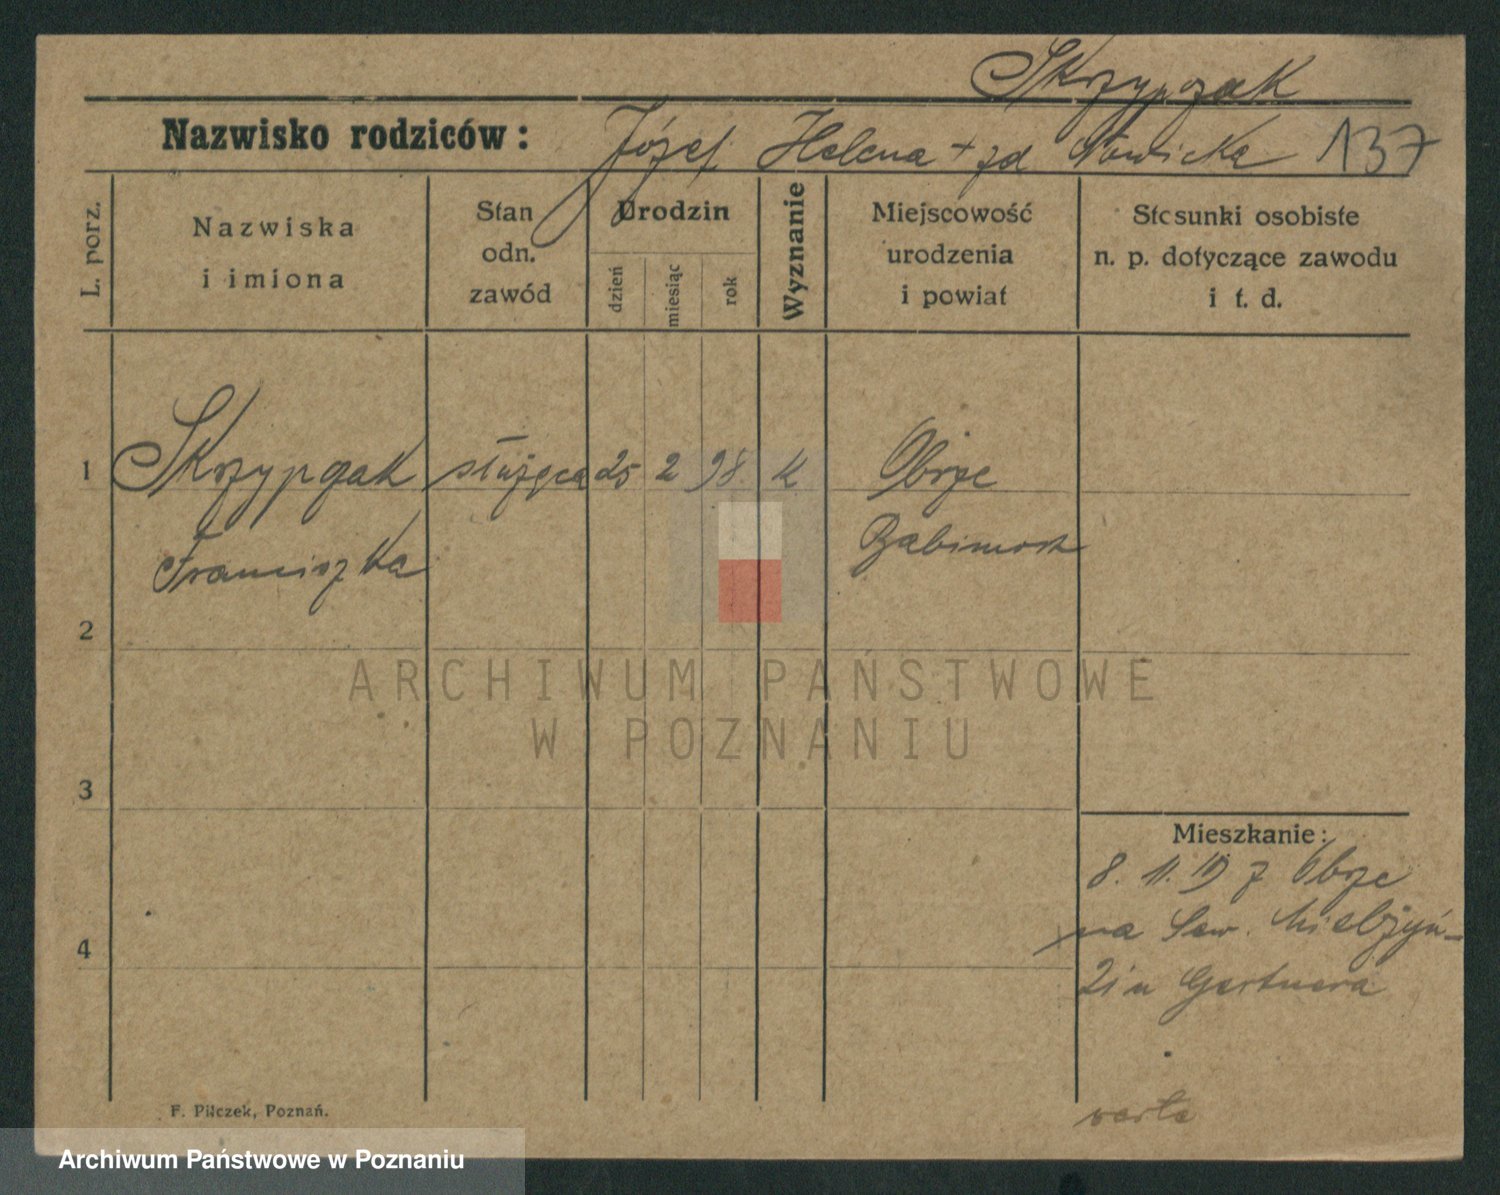 Skrzypczak
Nazwisko rodziców: Józef Helena + zd Nowicka 137
L. porz.
Nazwiska
i imiona
Stan
odn.
zawód
Urodzin
dzień
miesiąc
rok
Wyznanie
Miejscowość
urodzenia
i powiat
Stosunki osobiste
n. p. dotyczące zawodu
i t. d.
1 Skrzypczak służąca 25 2 98. K Obrze
Franciszka Babimost
2
ARCHIWUM PAŃSTWOWE
W POZNANIU
3
Mieszkanie:
8. 11. 19 z Obrze
na Sew. Mielżyń-
4
21 u Gertnera
verte
F. Pilczek, Poznań.
Archiwum Państwowe w Poznaniu